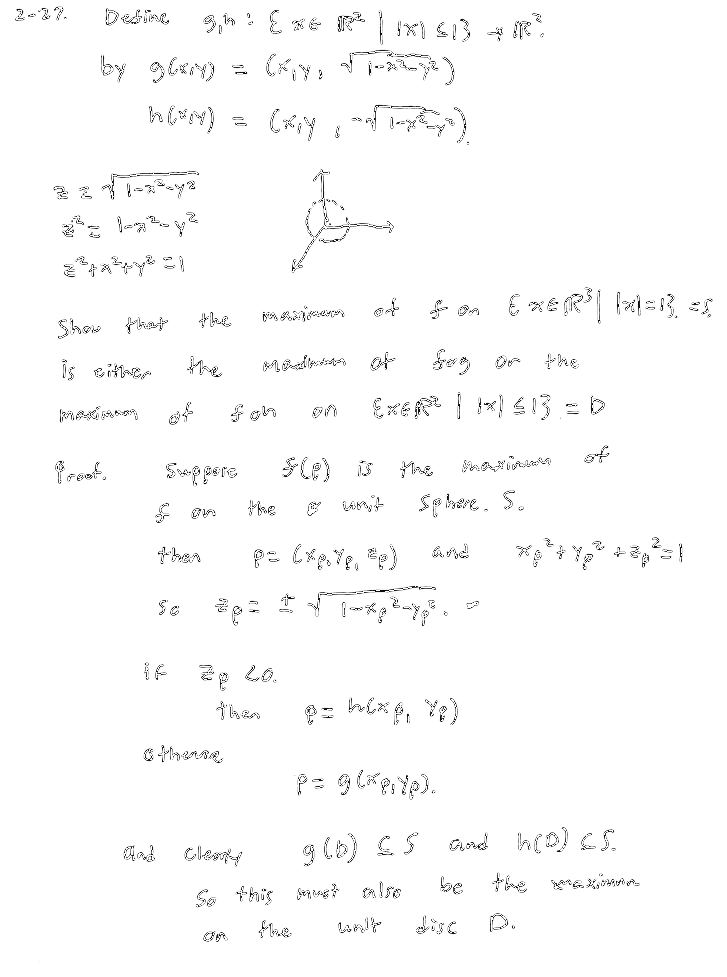 2-27. Define g,h : { x ∈ ℝ² | |x| ≤ 1} → ℝ³.
by g(x,y) = (x,y, √(1-x²-y²))
h(x,y) = (x,y, -√(1-x²-y²)).
z = √(1-x²-y²)
z² = 1-x²-y²
z²+x²+y² = 1
Show that the maximum of f on { x ∈ ℝ³ | |x|=1} = S
is either the maximum of f∘g or the
maximum of f∘h on { x ∈ ℝ² | |x| ≤ 1} = D
Proof. Suppose f(p) is the maximum of
f on the unit sphere. S.
then p = (xₚ, yₚ, zₚ) and xₚ² + yₚ² + zₚ² = 1
so zₚ = ± √(1-xₚ²-yₚ²).
if zₚ < 0.
then p = h(xₚ, yₚ)
otherwise
p = g(xₚ, yₚ).
and clearly g(D) ⊆ S and h(D) ⊆ S.
So this must also be the maximum
on the unit disc D.